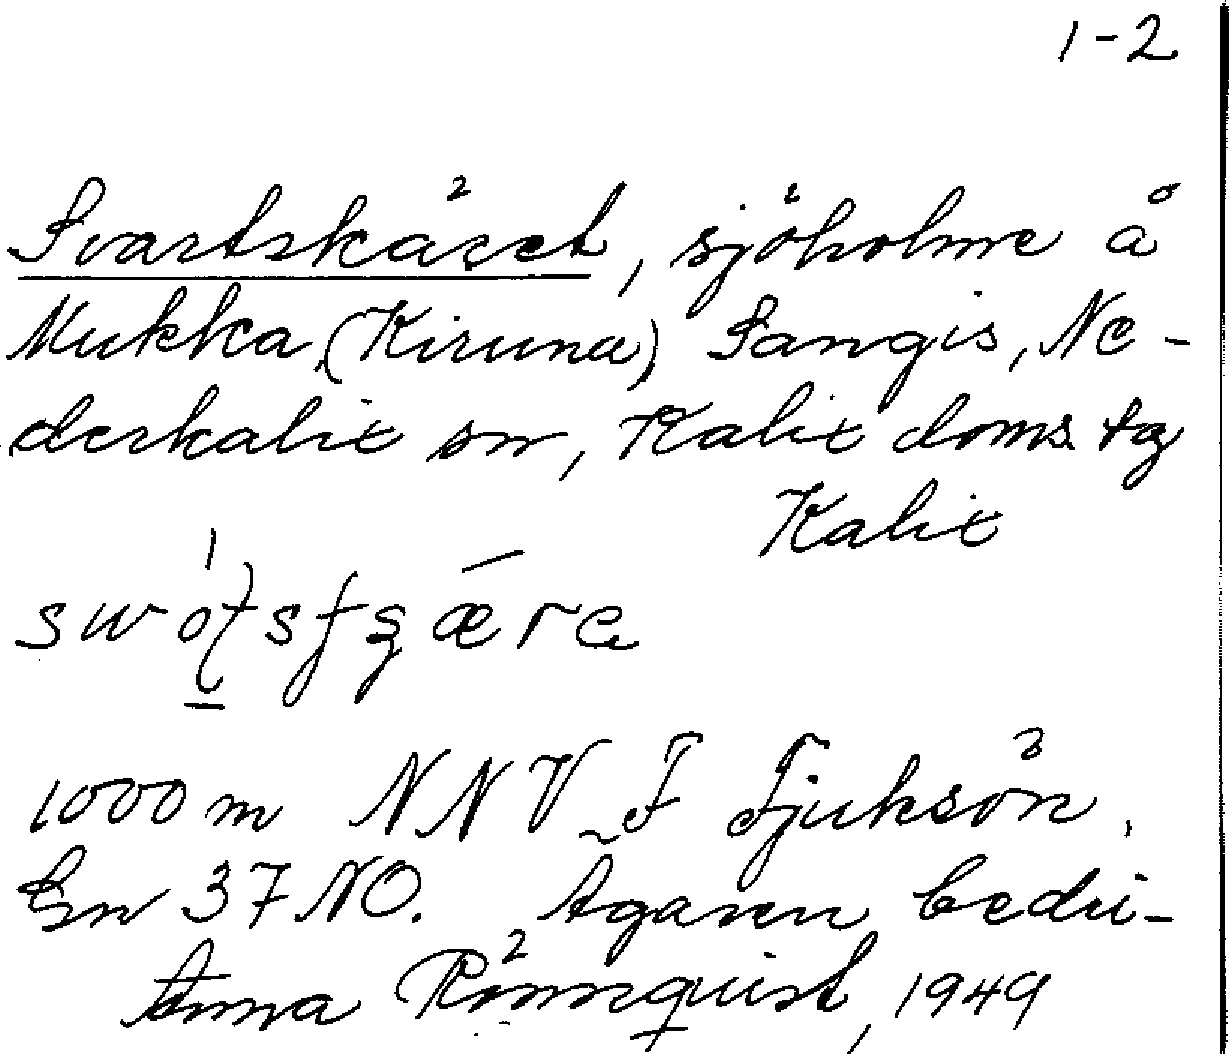 1-2
Svartskäret, sjöholme å
Mukka (Kiruna) Sangis, Ne-
derkalix sn, Kalix doms tg
Kalix
1000 m NNV F Tjuksön.
Gn 37 NO. Ägaren bedri-
Anna Rönnquist, 1949